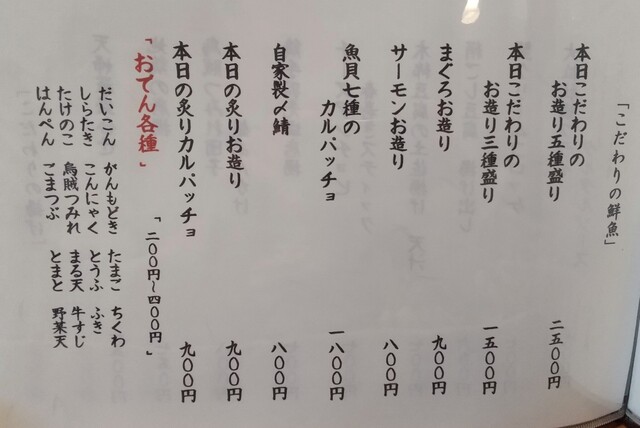 「こだわりの鮮魚」
本日こだわりの
お造り五種盛り 二五〇〇円
本日こだわりの
お造り三種盛り 一五〇〇円
まぐろお造り 九〇〇円
サーモンお造り 八〇〇円
魚貝七種の
カルパッチョ 一八〇〇円
自家製〆鯖 八〇〇円
本日の炙りお造り 九〇〇円
本日の炙りカルパッチョ 九〇〇円
「おでん各種」 「二〇〇円〜四〇〇円」
だいこん がんもどき たまご ちくわ
しらたき こんにゃく とうふ ふき
たけのこ 烏賊つみれ まる天 牛すじ
はんぺん ごまつぶ とまと 野菜天